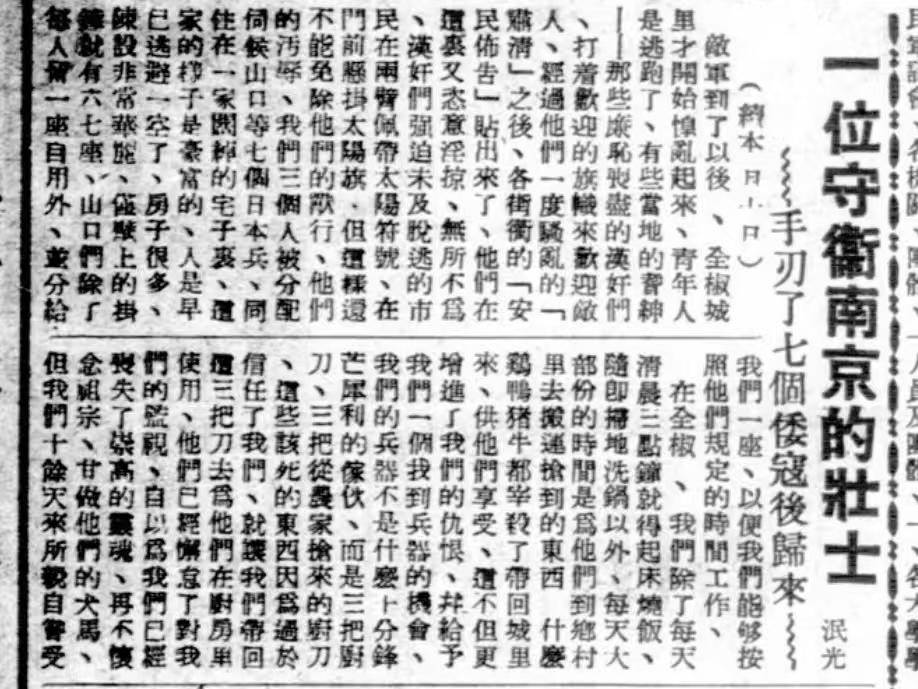 一位守衞南京的壯士
泯光
手刃了七個倭寇後歸來
敵軍到了以後、全椒城
里才開始惶亂起來、青年人
是逃跑了、有些當地的耆紳
——那些廉恥喪盡的漢奸們
、打着歡迎的旗幟來歡迎敵
人、經過他們一度騷亂的「
肅清」之後、各街衝的「安
民佈告」貼出來了、他們在
這裏又恣意淫掠、無所不爲
、漢奸們强迫未及脫逃的市
民在兩臂佩帶太陽符號、在
門前懸掛太陽旗、但這樣還
不能免除他們的獸行、他們
的汚辱、我們三個人被分配
伺候山口等七個日本兵、同
住在一家闊綽的宅子裏、這
家的樣子是豪富的、人是早
已逃避一空了、房子很多、
陳設非常華麗、僅壁上的掛
鐘就有六七座、山口們除了
每人留一座自用外、並分給
我們一座、以便我們能够按
照他們規定的時間工作、
在全椒、我們除了每天
清晨三點鐘就得起床燒飯、
隨卽掃地洗鍋以外、每天大
部份的時間是爲他們到鄉村
里去搬運搶到的東西 什麼
鷄鴨猪牛都宰殺了帶回城里
來、供他們享受、這不但更
增進了我們的仇恨、幷給予
我們一個找到兵器的機會、
我們的兵器不是什麼十分鋒
芒犀利的傢伙、而是三把廚
刀、三把從農家搶來的廚刀
、這些該死的東西因爲過於
信任了我們、就讓我們帶回
這三把刀去爲他們在廚房里
使用、他們已經懈怠了對我
們的監視、自以爲我們已經
喪失了崇高的靈魂、再不懷
念祖宗、甘做他們的犬馬、
但我們十餘天來所親自嘗受